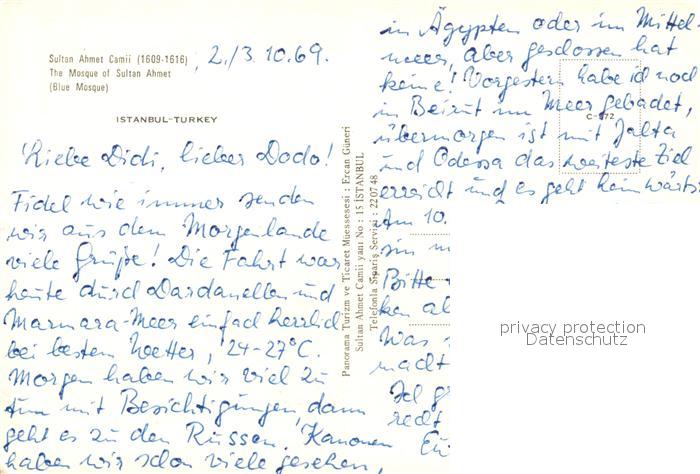 Sultan Ahmet Camii (1609-1616)
The Mosque of Sultan Ahmet
(Blue Mosque)
ISTANBUL-TURKEY
2./3.10.69.
Liebe Didi, lieber Dodo!
Fidel wie immer senden
wir aus dem Morgenlande
viele Grüße! Die Fahrt war
heute durch Dardanellen und
Marmara-Meer einfach herrlich
bei bestem Wetter, 24-27°C.
Morgen haben wir viel zu
tun mit Besichtigungen, dann
geht es zu den Russen. Kanonen
haben wir schon viele gesehen,
Panorama Turizm ve Ticaret Müessesesi : Ercan Güneri
Sultan Ahmet Camii yanı No : 15 İSTANBUL
Telefonla Sipariş Servisi : 22 07 48
C-572
in Ägypten oder im Mittel-
meer, aber geschossen hat
keine! Vorgestern habe ich noch
in Beirut im Meer gebadet,
übermorgen ist mit Jalta
und Odessa das weiteste Ziel
erreicht und es geht heimwärts
Am 10.
Bitte
ken
Was
macht
Ich
privacy protection
Datenschutz